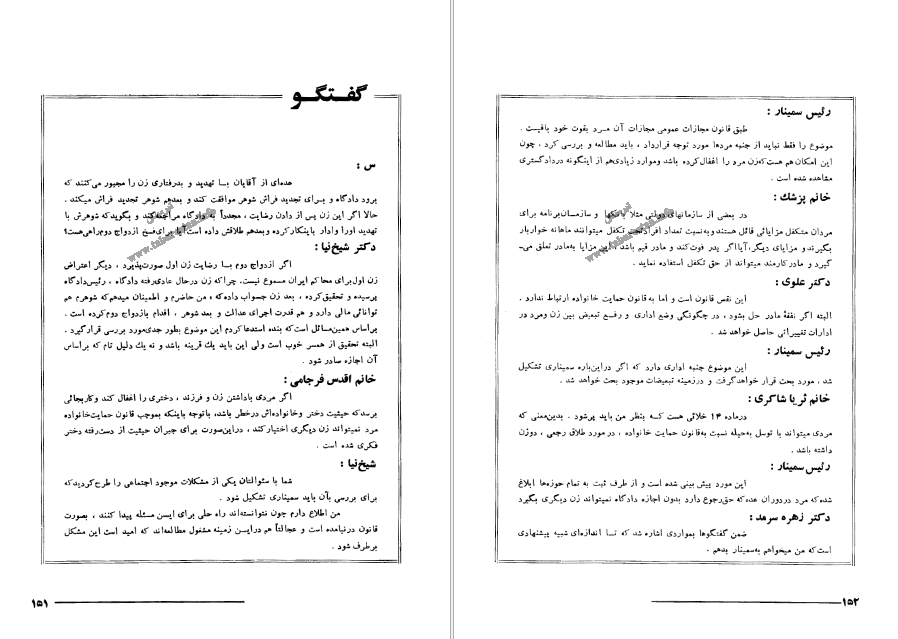 گفتگو
س :
عده‌ای از آقایان بـا تهدید و بدرفتاری زن را مجبور می‌کنند که
برود دادگاه و بـرای تجدید فراش شوهر موافقت کند و بعدهم شوهر تجدید فراش میکند .
حالا اگر این زن پس از دادن رضایت ، مجدداً به دادگاه مراجعه‌کند و بگویدکه شوهرش با
تهدید اورا وادار باینکارکرده وبعدهم طلاقش داده است‌آیا برای‌فسخ ازدواج دوم‌راهی‌هست؟
دکتر شیخ‌نیا :
اگر ازدواج دوم بـا رضایت زن اول صورت‌پذیرد ، دیگر اعتراض
زن اول‌برای محاکم ایران مسموع نیست. چراکه زن درحال عادی‌رفته دادگاه ، رئیس‌دادگاه
پرسیده و تحقیق‌کرده ، بعد زن جـواب داده‌که ، من حاضرم و اطمینان میدهم‌که شوهرم هم
توانائی مالی دارد و هم قدرت اجرای عدالت و بعد شوهر ، اقدام بازدواج دوم‌کرده است .
براساس همین‌مسائل است‌که بنده استدعا کردم این موضوع بطور جدی‌مورد بررسی قرارگیرد .
البته تحقیق از همسر خوب است ولی این باید یك قرینه باشد و نه یك دلیل تام که براساس
آن اجازه صادر شود .
خانم اقدس فرجامی :
اگر مردی باداشتن زن و فرزند ، دختری را اغفال کند وکاربجائی
برسدکه حیثیت دختر وخانواده‌اش درخطر باشد، باتوجه باینکه بموجب قانون حمایت‌خانواده
مرد نمیتواند زن دیگری اختیارکند ، دراین‌صورت برای جبران حیثیت از دست‌رفته دختر
فکری شده است .
شیخ‌نیا :
شما با سئوالتان یکی از مشکلات موجود اجتماعی را طرح‌کردیدکه
برای بررسی بآن باید سمیناری تشکیل شود .
من اطلاع دارم چون نتوانسته‌اند راه حلی برای ایـن مسئله پیدا کنند ، بصورت
قانون درنیامده است و عجالتاً هم درایـن زمینه مشغول مطالعه‌اند که امید است این مشکل
برطرف شود .
۱۵۱
رئیس سمینار :
طبق قانون مجازات عمومی مجازات آن مـرد بقوت خود باقیست .
موضوع را فقط نباید از جنبه مردها مورد توجه قرارداد ، باید مطالعه و بررسی کرد ، چون
این امکان هم هست‌که‌زن مرد را اغفال‌کرده باشد وموارد زیادی‌هم از اینگونه دردادگستری
مشاهده شده است .
خانم پزشك :
در بعضی از سازمانهای دولتی مثلا بانکها و سازمـان‌برنامه برای
مردان متکفل مزایائی قائل هستند وبه‌نسبت تعداد افرادتحت تکفل میتوانند ماهانه خواربار
بگیرند و مزایای دیگر، آیااگر پدر فوت‌کند و مادر قیم باشد ، این مزایا به‌مادر تعلق می-
گیرد و مادرکارمند میتواند از حق تکفل استفاده نماید .
دکتر علوی :
این نقص قانون است و اما به قانون حمایت خانواده ارتباط ندارد .
البته اگر نفقهٔ مادر حل بشود ، در چگونگی وضع اداری و رفـع تبعیض بین زن ومرد در
ادارات تغییراتی حاصل خواهد شد .
رئیس سمینار :
این موضوع جنبه اداری دارد که اگر دراین‌باره سمیناری تشکیل
شد ، مورد بحث قرار خواهدگرفت و درزمینه تبعیضات موجود بحث خواهد شد .
خانم ثریا شاکری :
درماده ۱۴ خلائی هست کـه بنظر من باید پرشود . بدین‌معنی که
مردی میتواند با توسل به‌حیله نسبت به‌قانون حمایت خانواده ، درمورد طلاق رجعی ، دوزن
داشته باشد .
رئیس سمینار :
این مورد پیش بینی شده است و از طرف ثبت به تمام حوزه‌ها ابلاغ
شده‌که مرد دردوران عده‌که حق‌رجوع دارد بدون اجازه دادگاه نمیتواند زن دیگری بگیرد
دکتر زهره سرمد :
ضمن گفتگوها بمواردی اشاره شد که تـا اندازه‌ای شبیه پیشنهادی
است‌که من میخواهم به‌سمینار بدهم .
۱۵۲